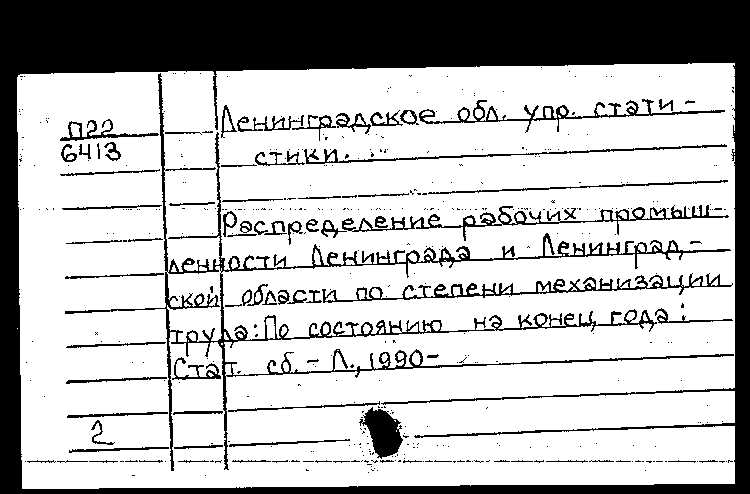 П22
6413
Ленинградское обл. упр. стати-
стики.
Распределение рабочих промыш-
ленности Ленинграда и Ленинград-
ской области по степени механизации
труда: По состоянию на конец года:
Стат. сб. - Л., 1990-
2